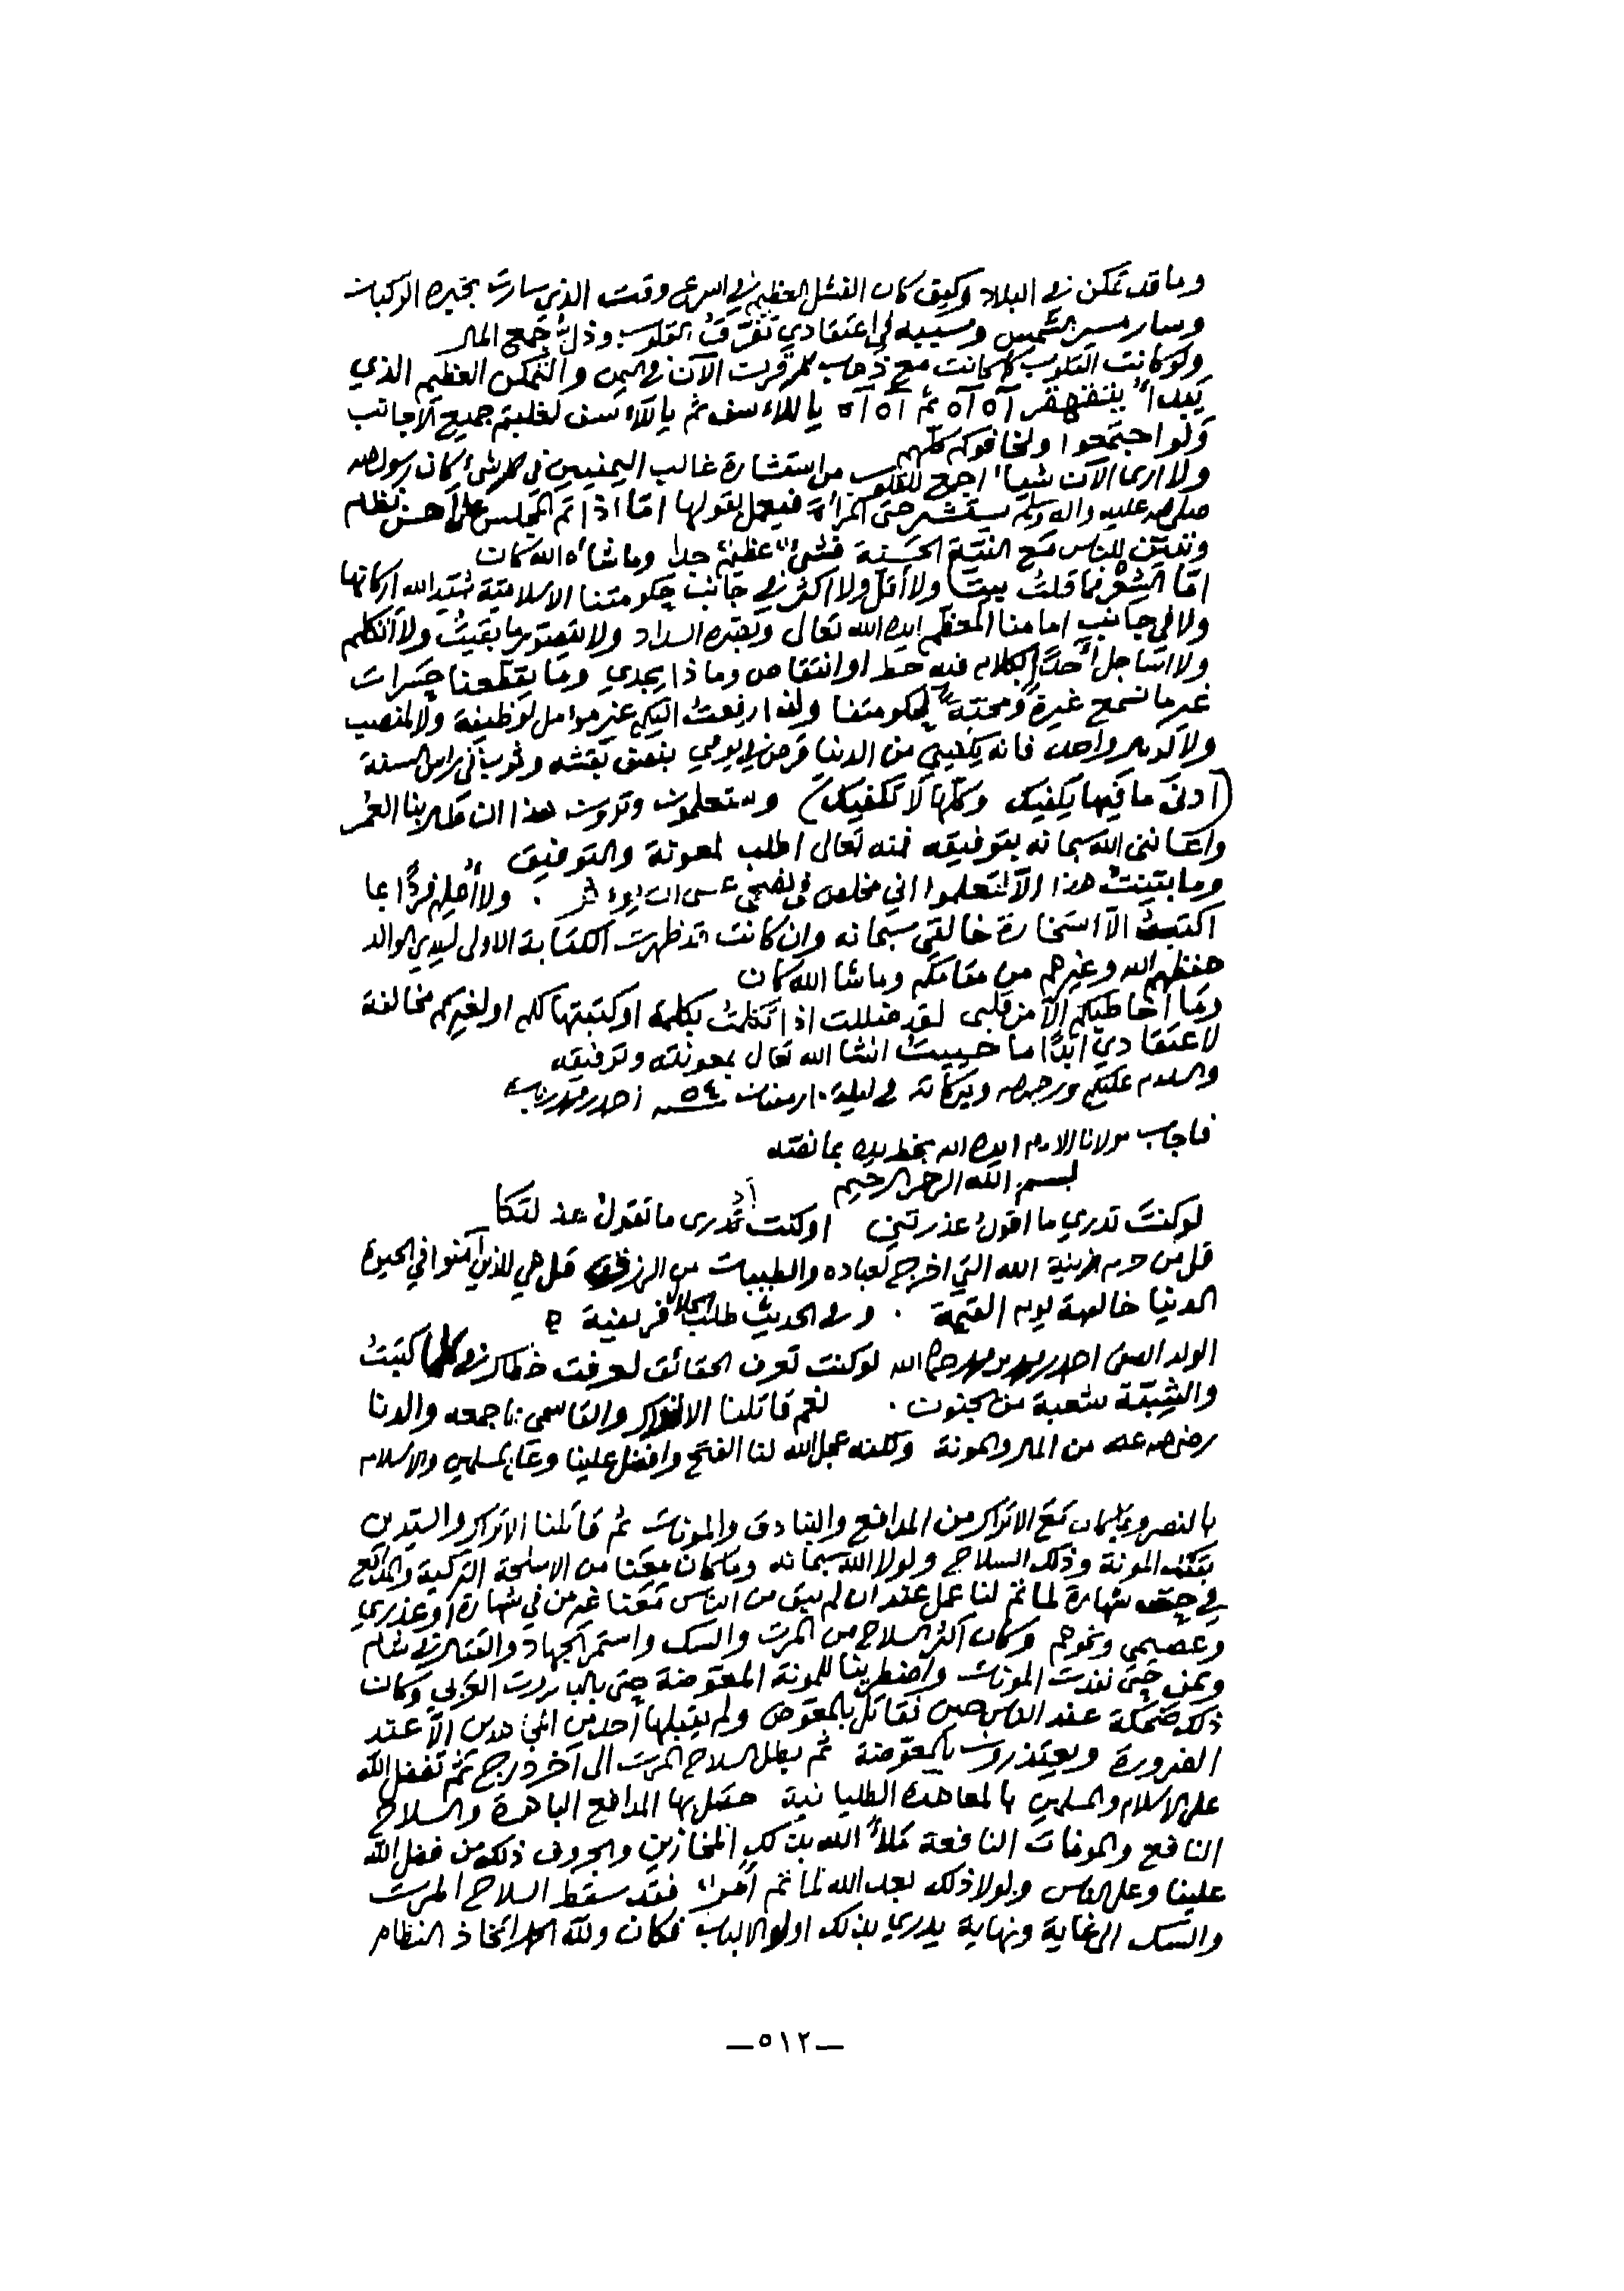 وما قد تمكن في البلاد وكيف كان الفشل العظيم في اسرع وقت الذي سارت بخبره الركبان
وسار مسير الشمس وسببه في اعتقادي تفرق القلوب وذلك جمع المال
ولو كانت القلوب كما كانت مع ذهاب الآن في اليمن والتمكن العظيم الذي
يبدأ بتقهقر آه آه ثم آه آه يا للاسف ثم يا للاسف لغلبتم جميع الأجانب
ولو اجتمعوا ولخافوكم كلهم
ولا ارى الآن شيئا اجمع للقلوب من استشارة غالب اليمنيين في كل شئ كان رسول الله
صلى الله عليه وآله وسلم يستشير حتى المرأة فيعمل بقولها امّا اذا تم المجلس على أحسن نظام
وتبين للناس مع النية الحسنة فشئ عظيم جدا وما شاء الله كان
امّا الشعر فما قلت بيتا ولا أقل ولا اكثر في جانب حكومتنا الاسلامية شيد الله اركانها
ولا في جانب امامنا المعظم ايده الله تعالى ولا يتصور ما بقيت ولا أتكلم
ولا اساجل أحداً بكلام فيه حط او انتقاص وما ذا يجدي وما يقطعنا حسرات
غير ما نسمع غيرةً ومحبّة لحكومتنا ولهذا رفعت اليكم غير مؤمل لوظيفة ولا لمنصب
ولا واحد فانه يكفيني من الدنيا قرص في يومي وثوب في راس السنة
(أدنى ما فيها يكفيك وكلها لا تكفيك) وستعلمون وترون هذا ان طال بنا العمر
واعانني الله سبحانه بتوفيقه فمنه تعالى اطلب المعونة والتوفيق
وما بينت هذا الا لتعلموا اني مخلص في نصحي عسى ان . ولا أعلم فرداً بما
اكتبه الا استخارة خالقي سبحانه وان كانت قد ظهرت الكتابة الاولى لسيدي الوالد
حفظهم الله وغيرهم من مقامكم وما شا الله كان
وما أخاطبكم الا من قلبي لقد ضللت اذا تكلمت بكلمة او كتبتها لكم او لغيركم مخالفة
لاعتقادي ابداً ما حييت انشا الله تعالى بمعونته وتوفيقه
والسلام عليكم ورحمة الله وبركاته في ليلة ١٠ رمضان سنة ٥٤ احمد
فاجاب مولانا الامام ايده الله بخط يده بما لفظه
بسم الله الرحمن الرحيم
لو كنتَ تدري ما اقول عذرتني او كنت أدري ما تقول عذلتكا
قل من حرم زينة الله التي اخرج لعباده والطيبات من الرزق قل هي للذين آمنوا في الحيوة
الدنيا خالصة يوم القيمة . وفي الحديث طلب الحلال فريضة
الولد الصفي احمد الله لو كنت تعرف الحقائق لعرفت خطاك في كلما كتبتَ
والشيبة شعبة من الجنون . نعم قاتلنا الاتراك والقاسمي ناجمعه والدنا
رضي الله عنه من المال والمونة ولكنه عجل الله لنا الفتح وافضل علينا وعلى المسلمين والاسلام
بالنصر وبما كان مع الاتراك من المدافع والبنادق والمونات ثم قاتلنا الاتراك والسيدين
بتلك المونة وذلك السلاح ولولا الله سبحانه وما كان معنا من الاسلحة التركية والمدافع
في شهارة لما تم لنا عمل عند ان لم يبق من الناس معنا غير من في شهارة او عذري
وعصيمي ونحوهم وكان أكثر السلاح من المرت والسك واستمر الجهاد والقتال في شام
ويمن حتى نفدت المونات واضطرينا للمونة المعوضة حتى بالبارود العربي وكان
ذلك ضحكة عند الناس حين نقاتل بالمعوض ولم يقبلها أحد من المجاهدين الا عند
الضرورة ويعتذرون بالمعوضة ثم بطل السلاح المرت الى آخر درج ثم تفضل الله
على الاسلام والمسلمين بالمعاهدة الطليانية حصل بها المدافع الباهرة والسلاح
النافع والمونات النافعة ملأ الله بذلك المخازين والجروف ذلك من فضل الله
علينا وعلى الناس ولولا ذلك بعد الله لما تم أمرٌ فقد سقط السلاح المرت
والسك الى غاية ونهاية يدري بذلك اولو الالباب فكان ولله الحمد اتخاذ النظام
—٥١٢—